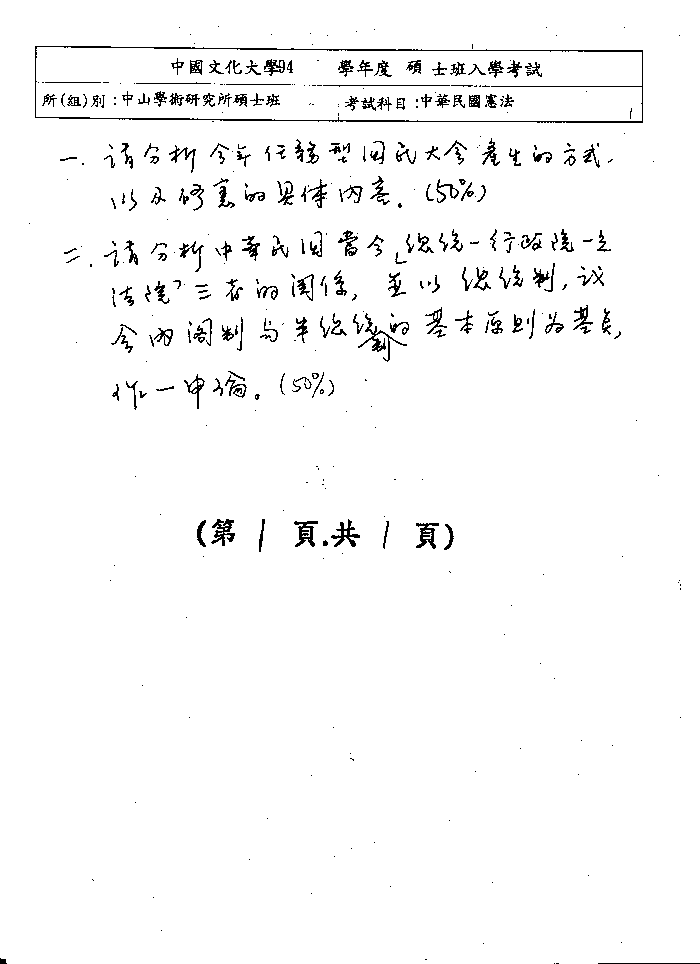 中國文化大學94 學年度 碩 士班入學考試
所(組)別:中山學術研究所碩士班 考試科目:中華民國憲法 1
一. 請分析今年任務型国民大会產生的方式,
以及修憲的具体內容. (50%)
二. 請分析中華民国當今「總統－行政院－立
法院」三者的関係, 並以總統制, 議
会內阁制与半總統制的基本原則为基負,
作一申論。(50%)
(第 1 頁.共 1 頁)